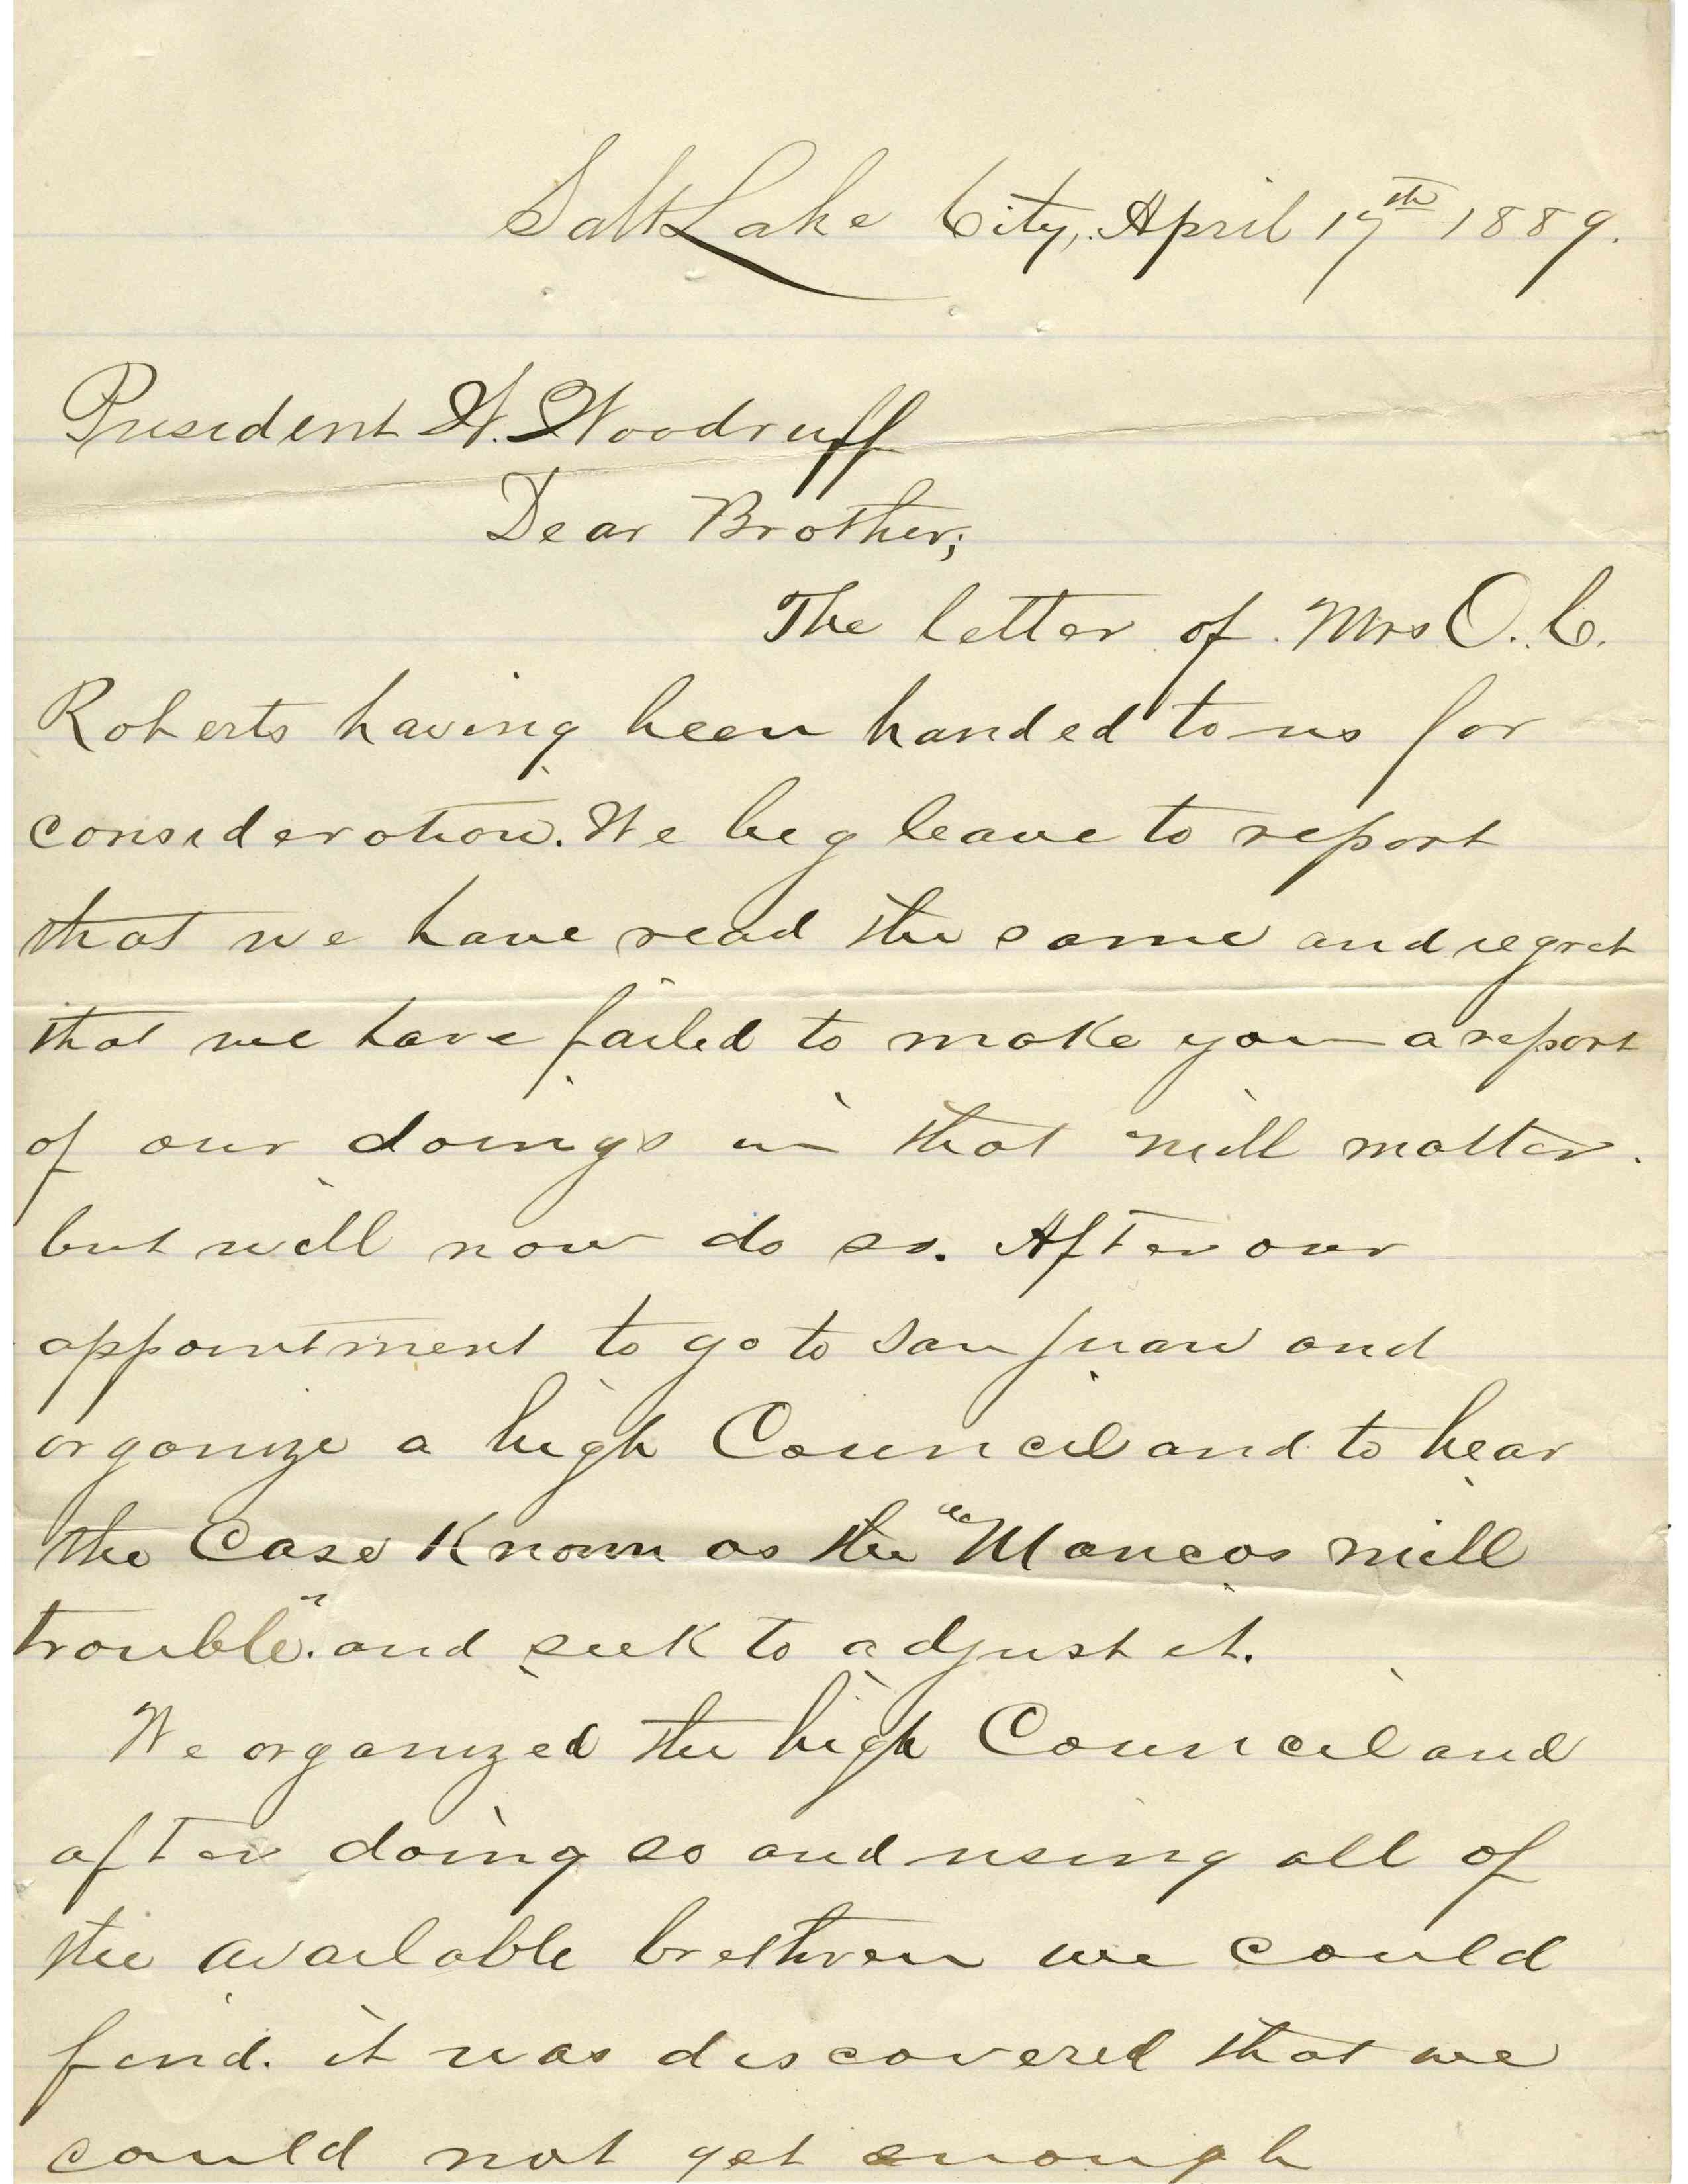 Salt Lake City, April 17th 1889.
President W. Woodruff
Dear Brother;
The letter of Mrs O. C.
Roberts having been handed to us for
consideration. We beg leave to report
that we have read the same and regret
that we have failed to make you a report
of our doings in that mill matter.
but will now do so. After our
appointment to go to San Juan and
organize a high Council and to hear
the Case Known as the "Mancos mill
trouble". and seek to adjust it.
We organized the high Council and
after doing so and using all of
the available brethren we could
find. it was discovered that we
could not get enough